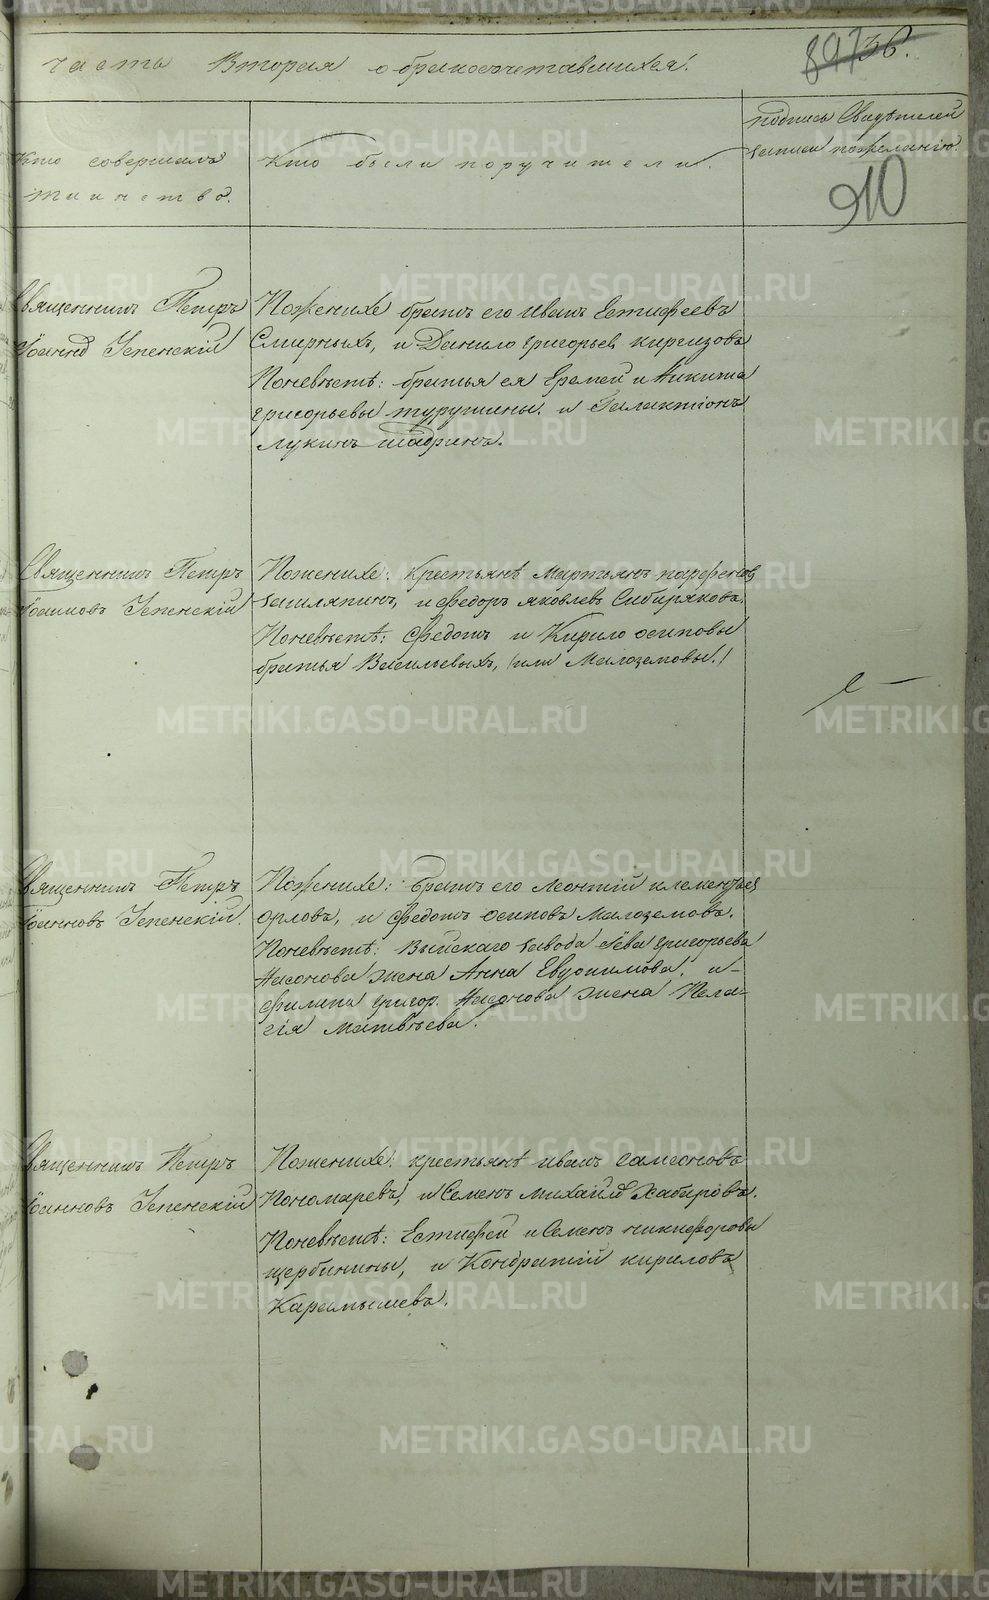 часть Вторая о бракосочетавшихся.
897 36.
Кто совершалъ
таинство.
Кто были поручители.
подпись Свидѣтелей
записи по желанію.
910
Священникъ Петръ
Іоанновъ Успенскій
По женихѣ братъ его Иванъ Естифеевъ
Смирныхъ, и Данило Григорьевъ
По невѣстѣ: братья ея Еремей и Никита
Григорьевы и Галактіонъ
Лукинъ Шадринъ.
Священникъ Петръ
Іоанновъ Успенскій
По женихѣ: Крестьянѣ Мартьянъ Парфеновъ
и Федоръ Яковлевъ Сибиряковъ.
По невѣстѣ: Федотъ и Кирило Осиповы
братья Васильевыхъ, (или Малоземовы.)
Священникъ Петръ
Іоанновъ Успенскій.
По женихѣ: братъ его Леонтій Клементьев
Орловъ, и Федотъ Осиповъ Малоземовъ.
По невѣстѣ: Выйскаго завода Григорьева
Насонова жена Анна Евдокимова, и
Филипа Григор. Насонова жена Пела-
гія Матвѣева.
Священникъ Петръ
Іоанновъ Успенскій
По женихѣ: крестьянѣ Иванъ Самсоновъ
Пономаревъ, и Семенъ Михайл Хабаровъ.
По невѣстѣ: Естифей и Семенъ Никифоровы
Щербинины, и Кондратій Кириловъ
Карамышевъ.
METRIKI.GASO-URAL.RU